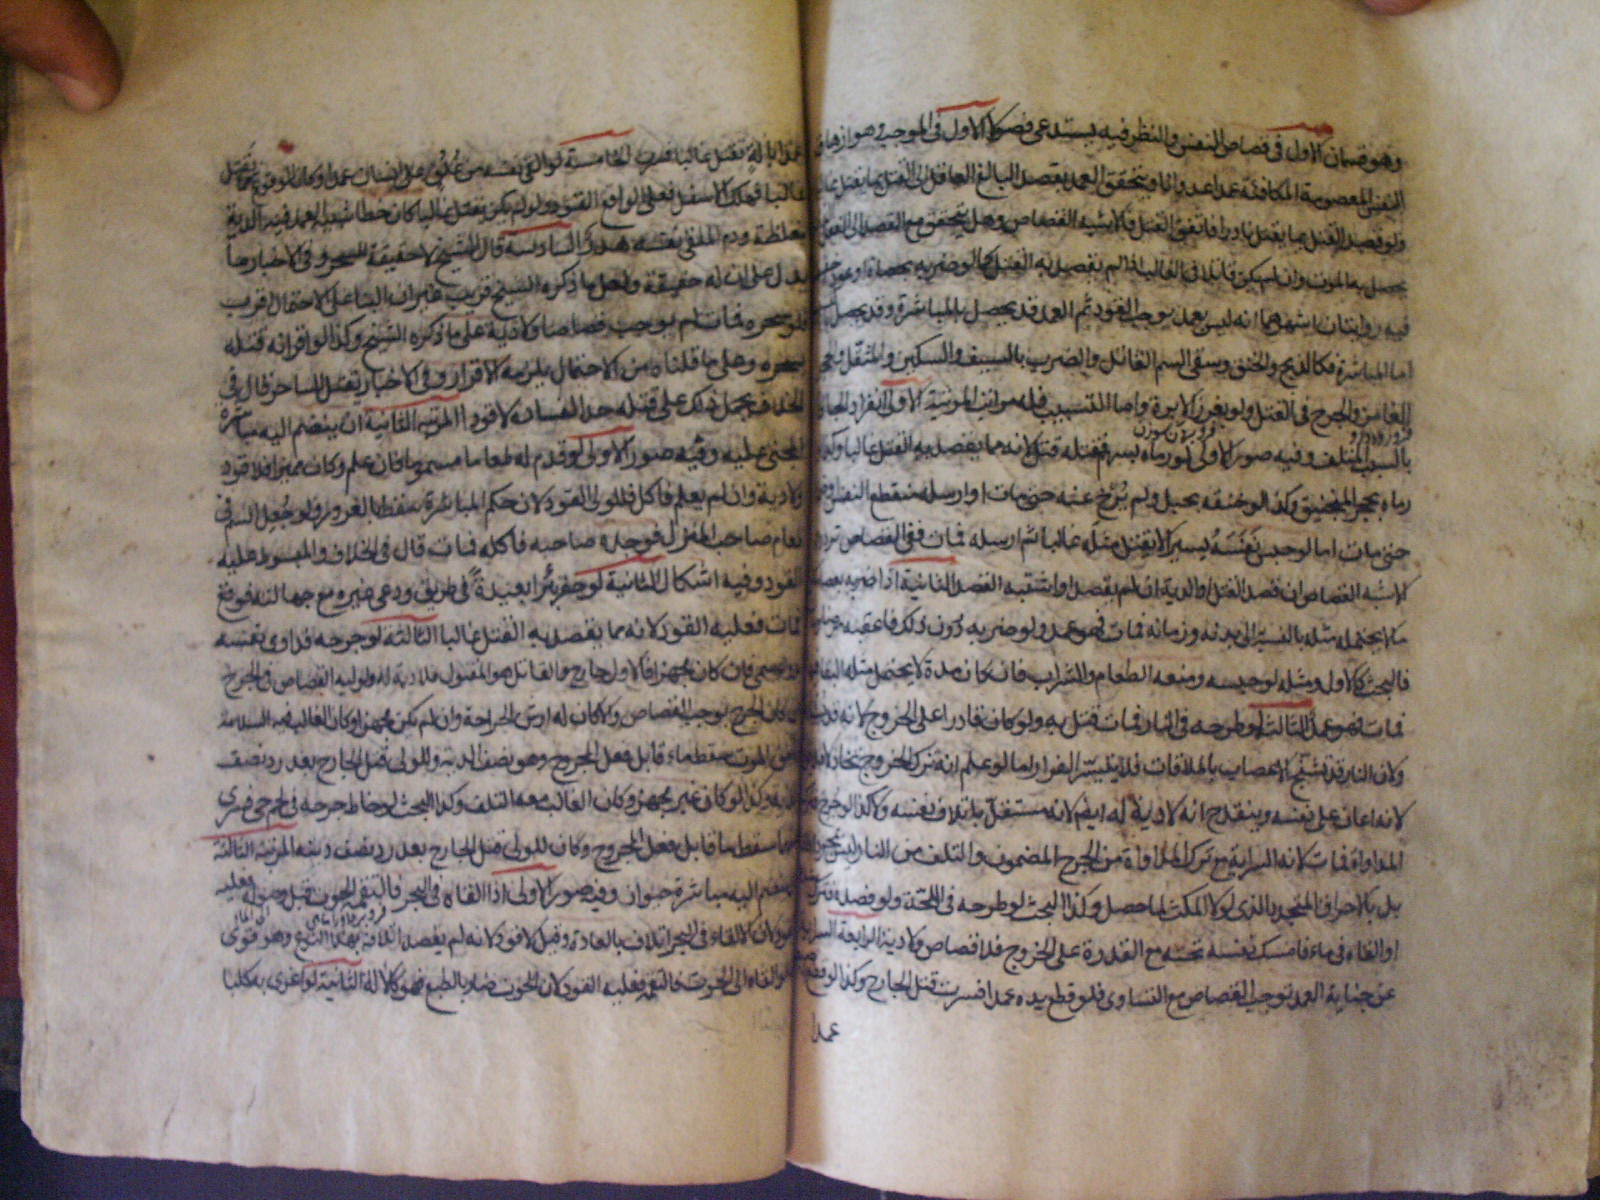 وهو قسمان الاول فى قصاص النفس والنظر فيه يستدعى فصولا الاول فى الموجب وهو ازهاق
النفس المعصومة المكافئة عمدا عدوانا ويتحقق العمد بقصد البالغ العاقل الى القتل بما يقتل غا
ولو قصد القتل بما يقتل نادرا فاتفق القتل فالاشبه القصاص وهل يتحقق مع القصد الى الفعل
يحصل به الموت وان لم يكن قاتلا فى الغالب اذا لم يقصد به القتل كما لو ضربه بحصاة او عود خفيف
فيه روايتان اشهرهما انه ليس بعمد يوجب القود ثم العمد قد يحصل بالمباشرة وقد يحصل با
اما المباشرة فكالذبح والخنق وسقى السم القاتل والضرب بالسيف والسكين والمثقل والحجر
الغامز والجرح فى المقتل ولو بغرز الابرة واما التسبيب فله مراتب المرتبة الاولى انفراد الجانى
بالسبب المتلف وفيه صور الاولى لو رماه بسهم فقتله قتل لانه مما يقصد به القتل غالبا وكذا
رماه بحجر المنجنيق وكذا لو خنقه بحبل ولم يرخ عنه حتى مات او ارسله منقطع النفس او
حتى مات اما لو حبس نفسه يسيرا لا يقتل مثله غالبا ثم ارسله فمات ففى القصاص تردد
الاشبه القصاص ان قصد القتل والدية ان لم يقصد او اشتبه القصد الثانية اذا ضربه بعصا
ما لا يحتمله مثله بالنسبة الى بدنه وزمانه فمات فهو عمد ولو ضربه دون ذلك فاعقبه مرضا
فالبحث كالاول ومثله لو حبسه ومنعه الطعام والشراب فان كان مدة لا يحتمل مثله البقاء
فمات فهو عمد الثالثة لو طرحه فى النار فمات قتل به ولو كان قادرا على الخروج لانه قد
ولان النار قد تشنج الاعصاب بالملاقات فلا يتيسر الفرار اما لو علم انه ترك الخروج تخاذلا فلا
لانه اعان على نفسه وينقدح انه لا دية له ايضا لانه مستقل باتلاف نفسه ولا كذا لو جرح
المداواة فمات لانه السراية مع ترك المداواة من الجرح المضمون والتلف من النار ليس بمجرد
بل بالاحراق المتجدد الذى لولا المكث لما حصل وكذا البحث لو طرحه فى اللجة ولو فصده فترك
او القاه فى ماء فامسك نفسه تحته مع القدرة على الخروج فلا قصاص ولا دية الرابعة السراية
عن جناية العمد توجب القصاص مع التساوى فلو قطع يده عمدا فسرت قتل الجارح وكذا لو قطع
عمدا
عمدا بالة تقتل غالبا فسرت الخامسة لو القى نفسه من علو على انسان عمدا وكان الوقوع مما يقتل
غالبا فهلك الاسفل فعلى الواقع القود ولو لم يكن يقتل غالبا كان خطا شبيه العمد فيه الدية
مغلظة ودم الملقى نفسه هدر السادسة قال الشيخ لا حقيقة للسحر وفى الاخبار ما
يدل على ان له حقيقة ولعل ما ذكره الشيخ قريب غير ان البناء على الاحتمال اقرب
فلو سحره فمات لم يوجب قصاصا ولا دية على ما ذكره الشيخ وكذا لو اقر انه قتله
بسحره وعلى ما قلناه من الاحتمال يلزمه الاقرار وفى الاخبار يقتل الساحر قال فى
الخلاف يحمل ذلك على قتله حدا لفساده لا قودا المرتبة الثانية ان ينضم اليه مباشرة
المجنى عليه وفيه صور الاولى لو قدم له طعاما مسموما فان علم وكان مميزا فلا قود
ولا دية وان لم يعلم فاكل فللولى القود لان حكم المباشرة سقط بالغرور ولو جعل السم فى
طعام صاحب المنزل فوجده صاحبه فاكله فمات قال فى الخلاف والمبسوط عليه
القود وفيه اشكال الثانية لو حفر بئرا بعيدة فى طريق ودعى غيره مع جهالته فوقع
فمات فعليه القود لانه مما يقصد به القتل غالبا الثالثة لو جرحه فداوى نفسه
بدواء سمى فان كان مجهزا فالاول جارح والقاتل هو المقتول فلا دية له ولوليه القصاص فى الجرح
ان كان الجرح يوجب القصاص والا كان له ارش الجراحة وان لم يكن مجهزا وكان الغالب فيه السلامة
فاتفق الموت سقط ما قابل فعل المجروح وهو نصف الدية وللولى قتل الجارح بعد رد نصف
الدية وكذا لو كان غير مجهز وكان الغالب معه التلف وكذا البحث لو خاط جرحه فى لحم حى فسرى
منهما سقط ما قابل فعل المجروح وكان للولى قتل الجارح بعد رد نصف ديته المرتبة الثالثة
ان ينضم اليه مباشرة حيوان وفيه صور الاولى اذا القاه فى البحر فالتقمه الحوت قبل وصوله فعليه
القود لان الالقاء فى البحر اتلاف بالعادة وقيل لا قود لانه لم يقصد اتلافه بهذا النوع وهو قوى
اما لو القاه الى الحوت فالتقمه فعليه القود لان الحوت ضار بالطبع فهو كالالة الثانية لو اغرى به كلبا